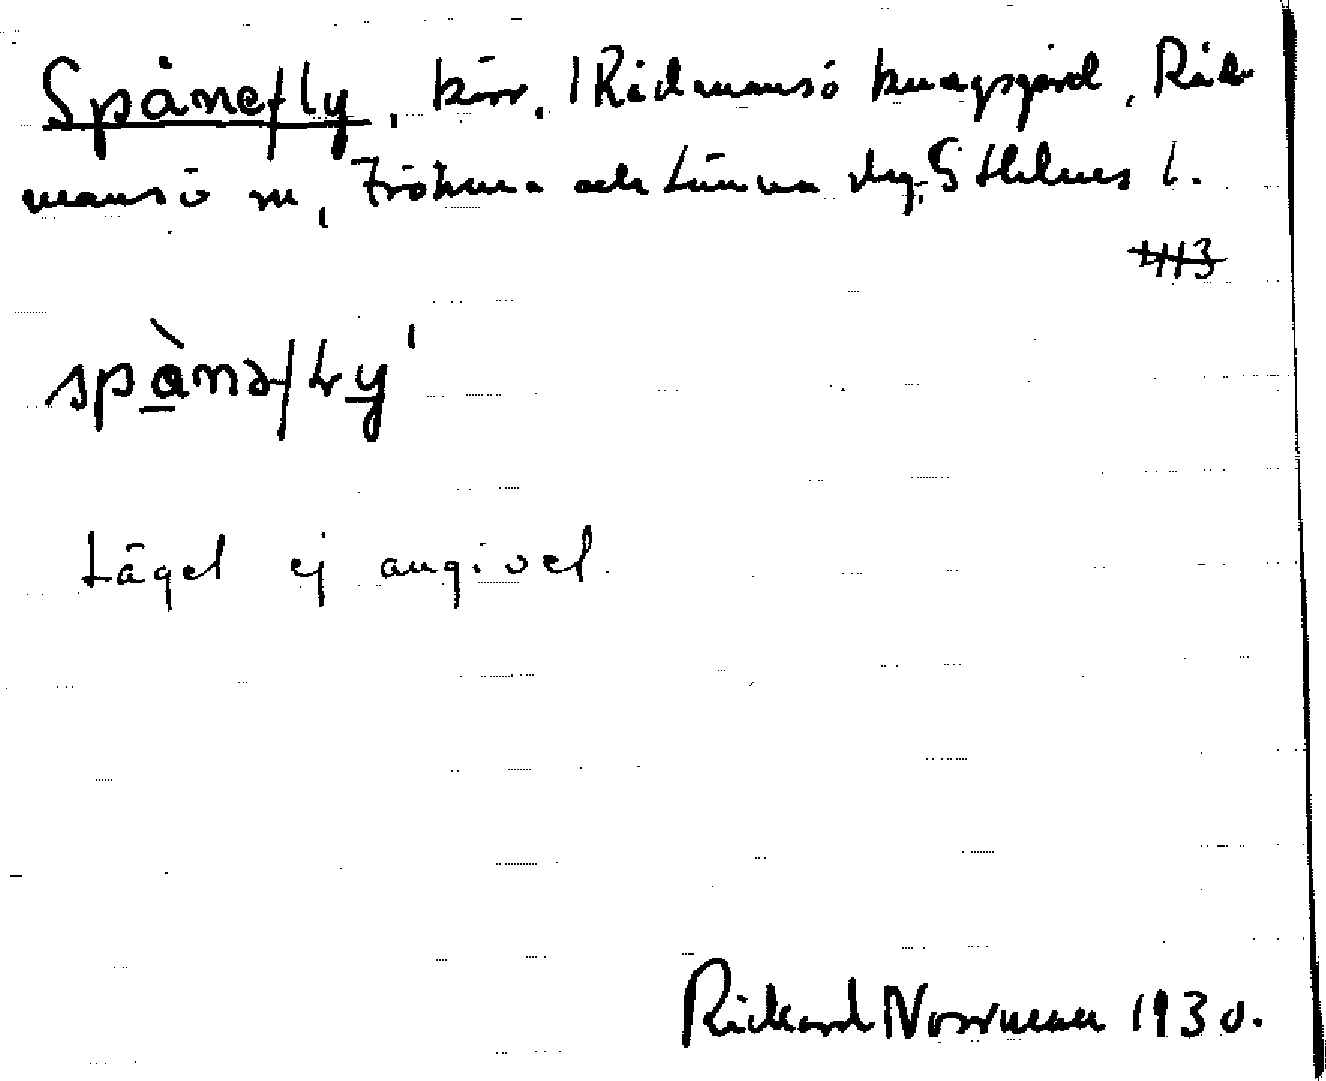 Spånefly, kärr, Rådmansö kungsgård, Råd-
mansö sn, Frötuna och Länna skg, Sthlms l.
spànəfly'
Läget ej angivet.
Rickard Norrman 1930.